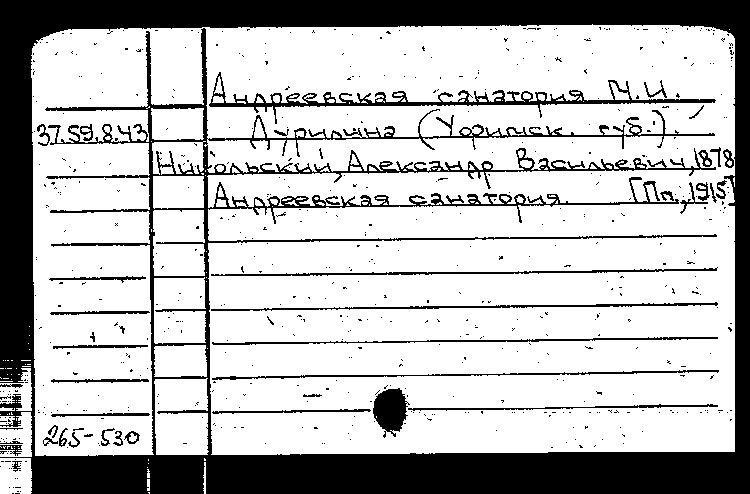 Андреевская санатория М.И.
37.59.8.43 Дурилина (Уфимск. губ.).
Никольский, Александр Васильевич, 1878
Андреевская санатория. [Пг., 1915]
265-530